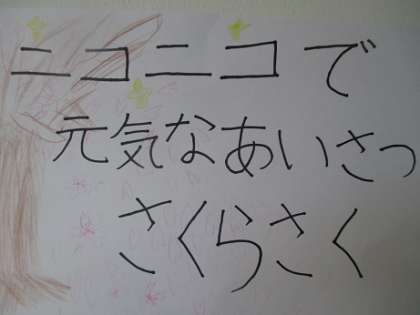 ニコニコで
元気なあいさつ
さくらさく